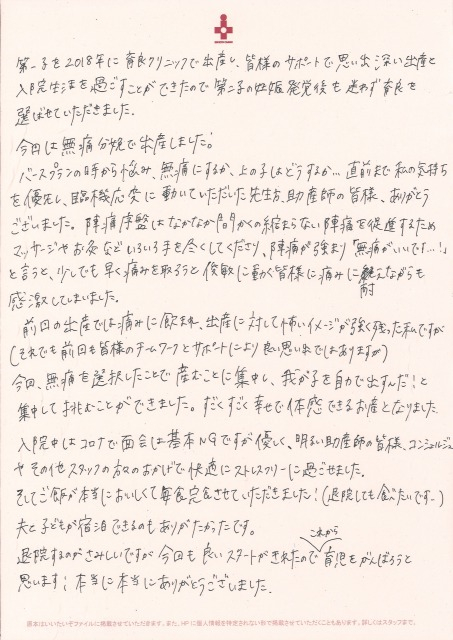 第一子を2018年に育良クリニックで出産し、皆様のサポートで思い出深い出産と
入院生活を過ごすことができたので第二子の妊娠発覚後も迷わず育良を
選ばせていただきました。
今回は無痛分娩で出産しました。
バースプランの時から悩み、無痛にするか、上の子はどうするか… 直前まで私の気持ち
を優先し、臨機応変に動いていただいた先生方、助産師の皆様、ありがとう
ございました。陣痛序盤はなかなか間かくの縮まらない陣痛を促進するため
マッサージやお灸などいろいろ手を尽くしてくださり、陣痛が強まり「無痛がいいです…!」
と言うと、少しでも早く痛みを取ろうと俊敏に動く皆様に痛みに耐えながらも
感激してしまいました。
前回の出産では痛みに飲まれ、出産に対して怖いイメージが強く残った私ですが
(それでも前回も皆様のチームワークとサポートにより良い思い出ではありますが)
今回、無痛を選択したことで産むことに集中し、我が子を自力で出すんだ!と
集中して挑むことができました。すごくすごく幸せで体感できるお産となりました
入院中はコロナで面会は基本NGですが優しく、明るい助産師の皆様、コンシェルジュ
やその他スタッフの方々のおかげで快適にストレスフリーに過ごせました。
そしてご飯が本当においしくて毎食完食させていただきました!(退院しても食べたいです…)
夫と子どもが宿泊できるのもありがたかったです。
退院するのがさみしいですが今回も良いスタートがきれたのでこれから育児をがんばろうと
思います!本当に本当にありがとうございました。
原本はいいたいぞファイルに掲載させていただきます。また、HPに個人情報を特定されない形で掲載させていただくこともあります。詳しくはスタッフまで。